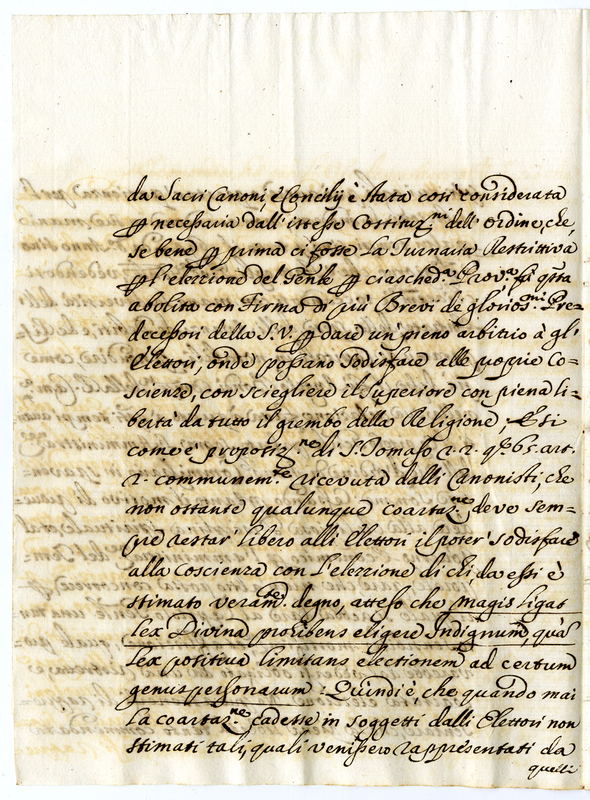 da Sacri Canoni, e Concilij è stata così considerata
ꝑ necessaria dall'istesse Costituz.ni dell'ordine, che
se bene ꝑ prima ci fosse la Turnaria Restrittiva
ꝑ l'elezzione del Gen̄le ꝑ ciasched.a Prov.a fù q̄sta
abolita con Firma di più Brevi de glorios.mi Pre=
decessori della S. V. ꝑ dare un pieno arbitrio à gl'
Elettori, onde possano sodisfare alle proprie Co=
scienze, con sciegliere il superiore con piena li=
bertà da tutto il grembo della Religione,
come è propotiz.ne di S. Tomaso 2. 2. q. 63. art.
2. communem.te ricevuta dalli Canonisti, che
non ostante qualunque coartaz.ne deve sem=
pre restar' libero alli Elettori il poter' sodisfare
alla Coscienza con l'elezzione di chi da essi è
stimato veram.te degno, atteso che magis ligat
lex Divina proibens eligere Indignum, quā
lex positiva limitans electionem ad certum
genus personarum: Quindi è, che quando mai
la coartaz.ne cadesse in soggetti dalli Elettori non
stimati tali, quali venissero rappresentati da
quelli